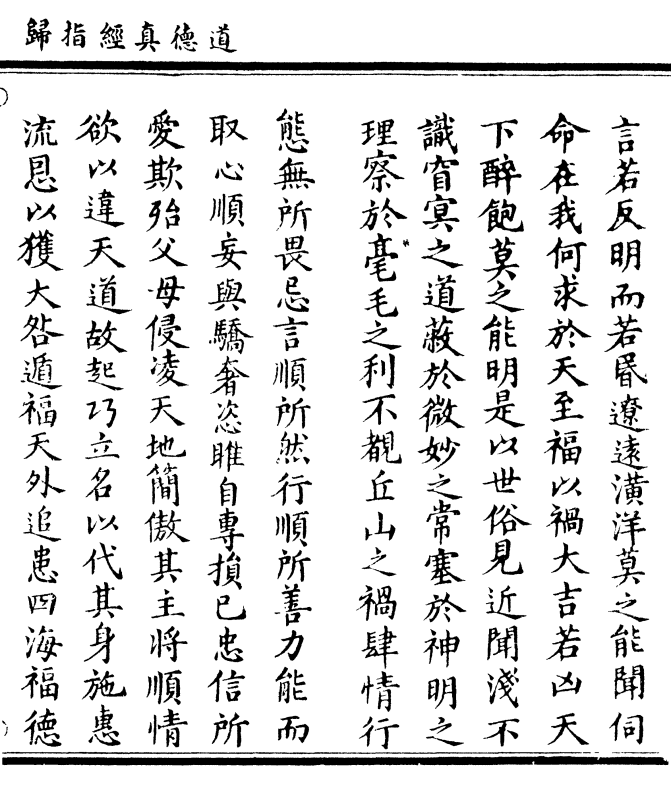 道德真經指歸
言若反明而若昬遼遠潢洋莫之能聞伺
命在我何求於天至福以禍大吉若凶天
下醉飽莫之能明是以世俗見近聞淺不
識窅冥之道蔽於微妙之常塞於神明之
理察於毫毛之利不覩丘山之禍肆情行
態無所畏忌言順所然行順所善力能而
取心順妄與驕奢恣睢自專損已忠信所
愛欺殆父母侵淩天地簡傲其主將順情
欲以違天道故起巧立名以代其身施惠
流恩以獲大咎遁福天外追患四海福德